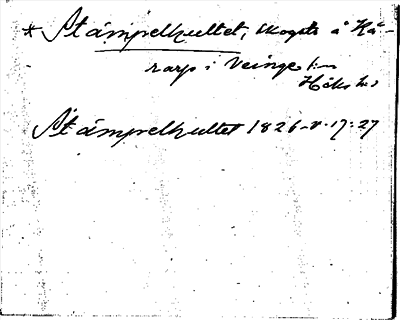 * Stämpelhultet, skogstr å Kå-
rarp i Veinge sn
Höks hd
Stämpelhultet 1826-V-17:27